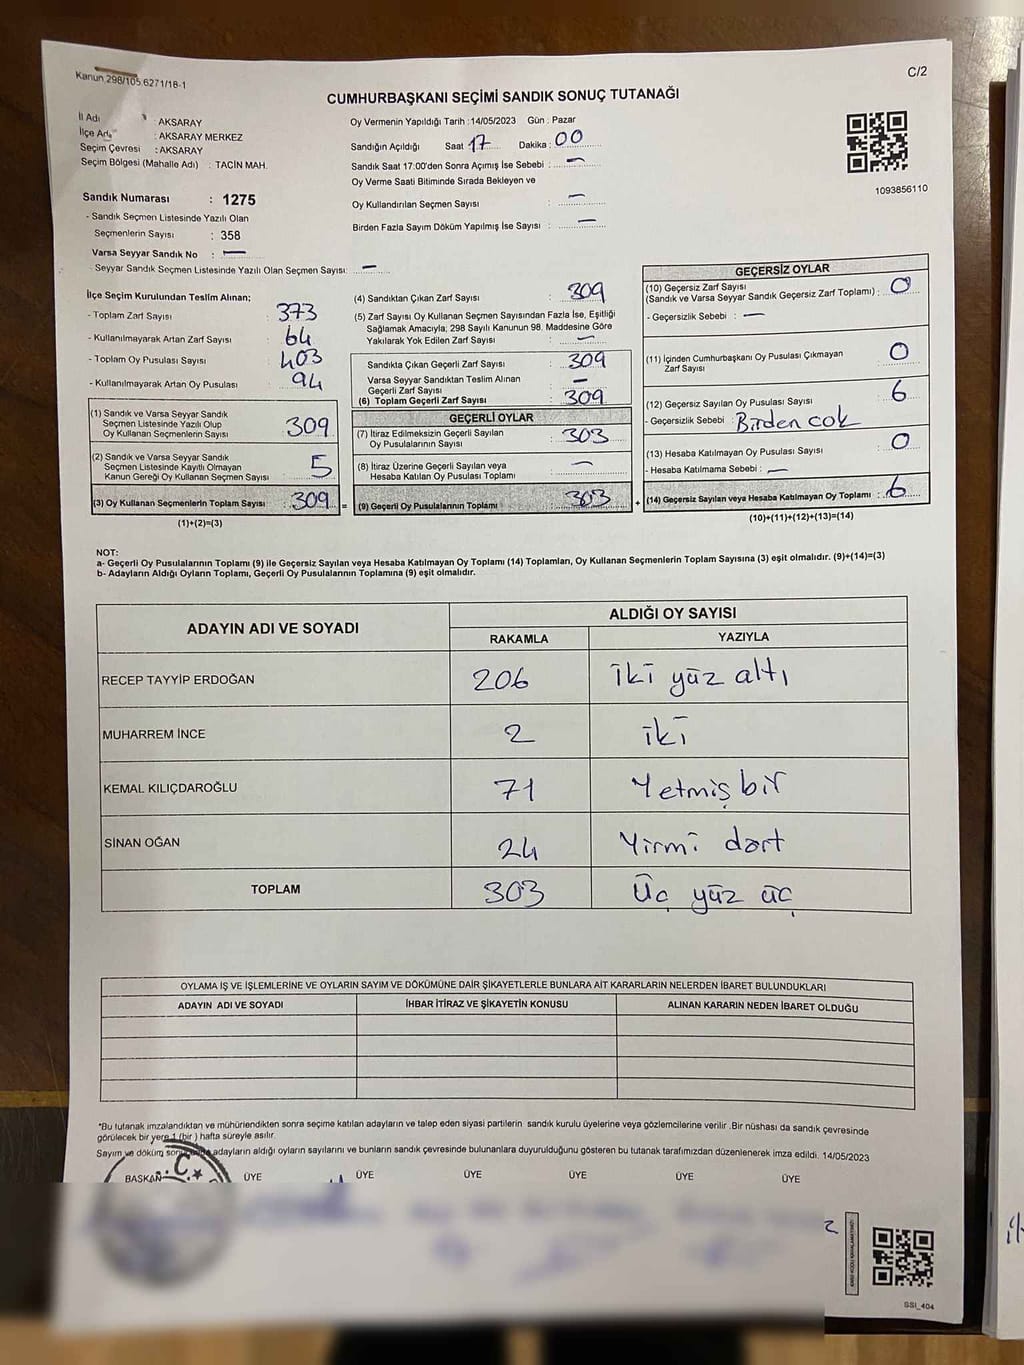 Kanun 298/105.6271/18-1
C/2
CUMHURBAŞKANI SEÇİMİ SANDIK SONUÇ TUTANAĞI
İl Adı : AKSARAY
İlçe Adı : AKSARAY MERKEZ
Seçim Çevresi : AKSARAY
Seçim Bölgesi (Mahalle Adı) : TACİN MAH.
Sandık Numarası : 1275
- Sandık Seçmen Listesinde Yazılı Olan
Seçmenlerin Sayısı : 358
Varsa Seyyar Sandık No : —
- Seyyar Sandık Seçmen Listesinde Yazılı Olan Seçmen Sayısı: —
Oy Vermenin Yapıldığı Tarih :14/05/2023 Gün : Pazar
Sandığın Açıldığı Saat 17 Dakika : 00
Sandık Saat 17:00'den Sonra Açımış İse Sebebi : —
Oy Verme Saati Bitiminde Sırada Bekleyen ve
Oy Kullandırılan Seçmen Sayısı : —
Birden Fazla Sayım Döküm Yapılmış İse Sayısı : —
1093856110
İlçe Seçim Kurulundan Teslim Alınan;
- Toplam Zarf Sayısı : 373
- Kullanılmayarak Artan Zarf Sayısı : 64
- Toplam Oy Pusulası Sayısı : 403
- Kullanılmayarak Artan Oy Pusulası : 94
(1) Sandık ve Varsa Seyyar Sandık
Seçmen Listesinde Yazılı Olup
Oy Kullanan Seçmenlerin Sayısı : 309
(2) Sandık ve Varsa Seyyar Sandık
Seçmen Listesinde Kayıtlı Olmayan
Kanun Gereği Oy Kullanan Seçmen Sayısı : 5
(3) Oy Kullanan Seçmenlerin Toplam Sayısı : 309 =
(1)+(2)=(3)
(4) Sandıktan Çıkan Zarf Sayısı : 309
(5) Zarf Sayısı Oy Kullanan Seçmen Sayısından Fazla İse, Eşitliği
Sağlamak Amacıyla; 298 Sayılı Kanunun 98. Maddesine Göre
Yakılarak Yok Edilen Zarf Sayısı : —
Sandıkta Çıkan Geçerli Zarf Sayısı : 309
Varsa Seyyar Sandıktan Teslim Alınan
Geçerli Zarf Sayısı : —
(6) Toplam Geçerli Zarf Sayısı : 309
GEÇERLİ OYLAR
(7) İtiraz Edilmeksizin Geçerli Sayılan
Oy Pusulalarının Sayısı : 303
(8) İtiraz Üzerine Geçerli Sayılan veya
Hesaba Katılan Oy Pusulası Toplamı : —
(9) Geçerli Oy Pusulalarının Toplamı : 303 +
GEÇERSİZ OYLAR
(10) Geçersiz Zarf Sayısı
(Sandık ve Varsa Seyyar Sandık Geçersiz Zarf Toplamı) : 0
- Geçersizlik Sebebi : —
(11) İçinden Cumhurbaşkanı Oy Pusulası Çıkmayan
Zarf Sayısı : 0
(12) Geçersiz Sayılan Oy Pusulası Sayısı : 6
- Geçersizlik Sebebi : Birden cok
(13) Hesaba Katılmayan Oy Pusulası Sayısı : 0
- Hesaba Katılmama Sebebi : —
(14) Geçersiz Sayılan veya Hesaba Katılmayan Oy Toplamı : 6
(10)+(11)+(12)+(13)=(14)
NOT:
a- Geçerli Oy Pusulalarının Toplamı (9) ile Geçersiz Sayılan veya Hesaba Katılmayan Oy Toplamı (14) Toplamları, Oy Kullanan Seçmenlerin Toplam Sayısına (3) eşit olmalıdır. (9)+(14)=(3)
b- Adayların Aldığı Oyların Toplamı, Geçerli Oy Pusulalarının Toplamına (9) eşit olmalıdır.
ADAYIN ADI VE SOYADI
ALDIĞI OY SAYISI
RAKAMLA YAZIYLA
RECEP TAYYİP ERDOĞAN 206 iki yüz altı
MUHARREM İNCE 2 iki
KEMAL KILIÇDAROĞLU 71 Yetmiş bir
SİNAN OĞAN 24 Yirmi dört
TOPLAM 303 Üç yüz üç
OYLAMA İŞ VE İŞLEMLERİNE VE OYLARIN SAYIM VE DÖKÜMÜNE DAİR ŞİKAYETLERLE BUNLARA AİT KARARLARIN NELERDEN İBARET BULUNDUKLARI
ADAYIN ADI VE SOYADI İHBAR İTİRAZ VE ŞİKAYETİN KONUSU ALINAN KARARIN NEDEN İBARET OLDUĞU
*Bu tutanak imzalandıktan ve mühürlendikten sonra seçime katılan adayların ve talep eden siyasi partilerin sandık kurulu üyelerine veya gözlemcilerine verilir .Bir nüshası da sandık çevresinde
görülecek bir yere 1 (bir) hafta süreyle asılır.
Sayım ve döküm adayların aldığı oyların sayılarını ve bunların sandık çevresinde bulunanlara duyurulduğunu gösteren bu tutanak tarafımızdan düzenlenerek imza edildi. 14/05/2023
BAŞKAN ÜYE ÜYE ÜYE ÜYE ÜYE ÜYE
SSI_404